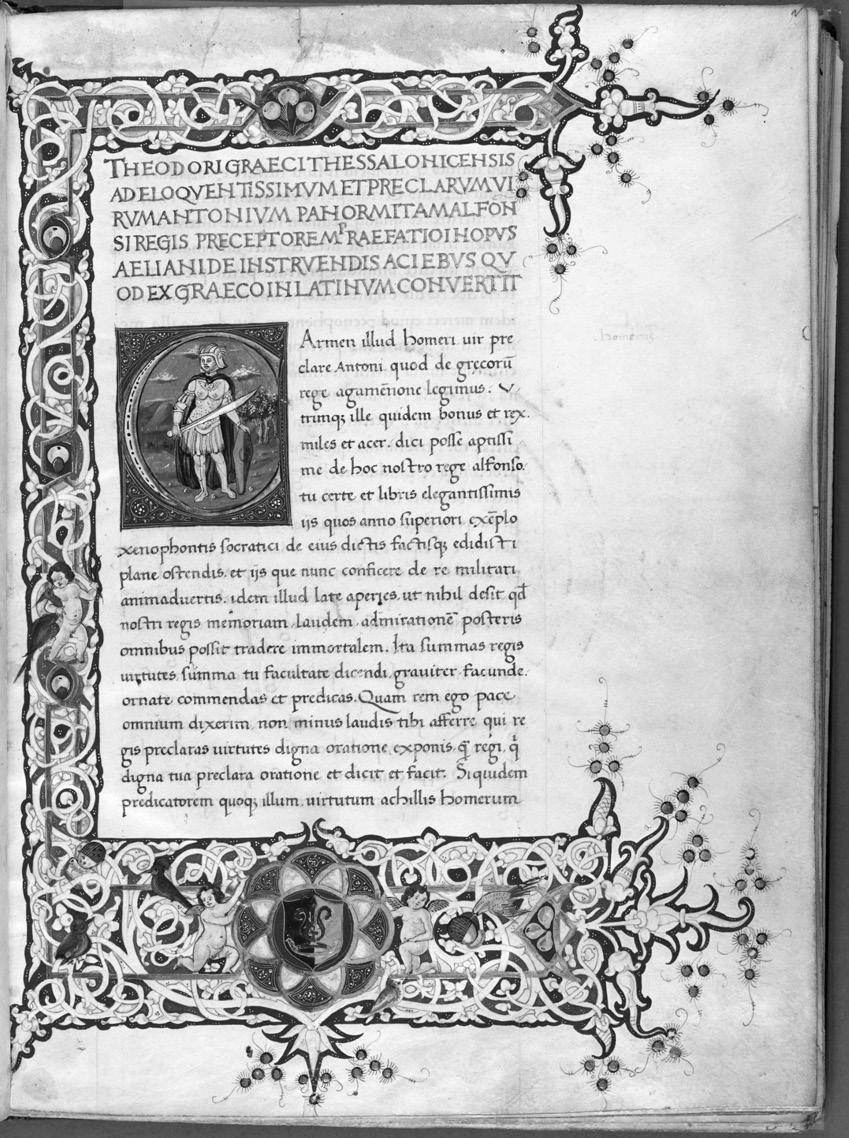 THEODORI GRAECI THESSALONICENSIS
AD ELOQVENTISSIMVM ET PRECLARVM VI
RVM ANTONIVM PANORMITAM ALFON
SI REGIS PRECEPTOREM PRAEFATIO IN OPVS
AELIANI DE INSTRVENDIS ACIEBVS QV
OD EX GRAECO IN LATINVM CONVERTIT
CArmen illud homeri uir pre
clare Antoni quod de grecorū
rege agamēnone legimus. V
trunq; ille quidem bonus et rex.
miles et acer. dici posse aptissi
me de hoc nostro rege alfonso.
tu certe et libris elegantissimis
ijs quos anno superiori exēplo
xenophontis socratici de eius dictis factisq; edidisti
plane ostendis. et ijs que nunc conficere de re militari
animaduertis. idem illud late aperies. ut nihil desit qđ
nostri regis memoriam laudem admirationē posteris
omnibus possit tradere immortalem. Ita summas regis
uirtutes summa tu facultate dicendi grauiter facunde.
ornate commendas et predicas. Quam rem ego pace
omnium dixerim non minus laudis tibi afferre qui re
gis preclaras uirtutes digna oratione exponis. q̄ regi, q̄
digna tua preclara oratione et dicit et facit. Siquidem
predicatorem quoq; illum uirtutum achillis homerum